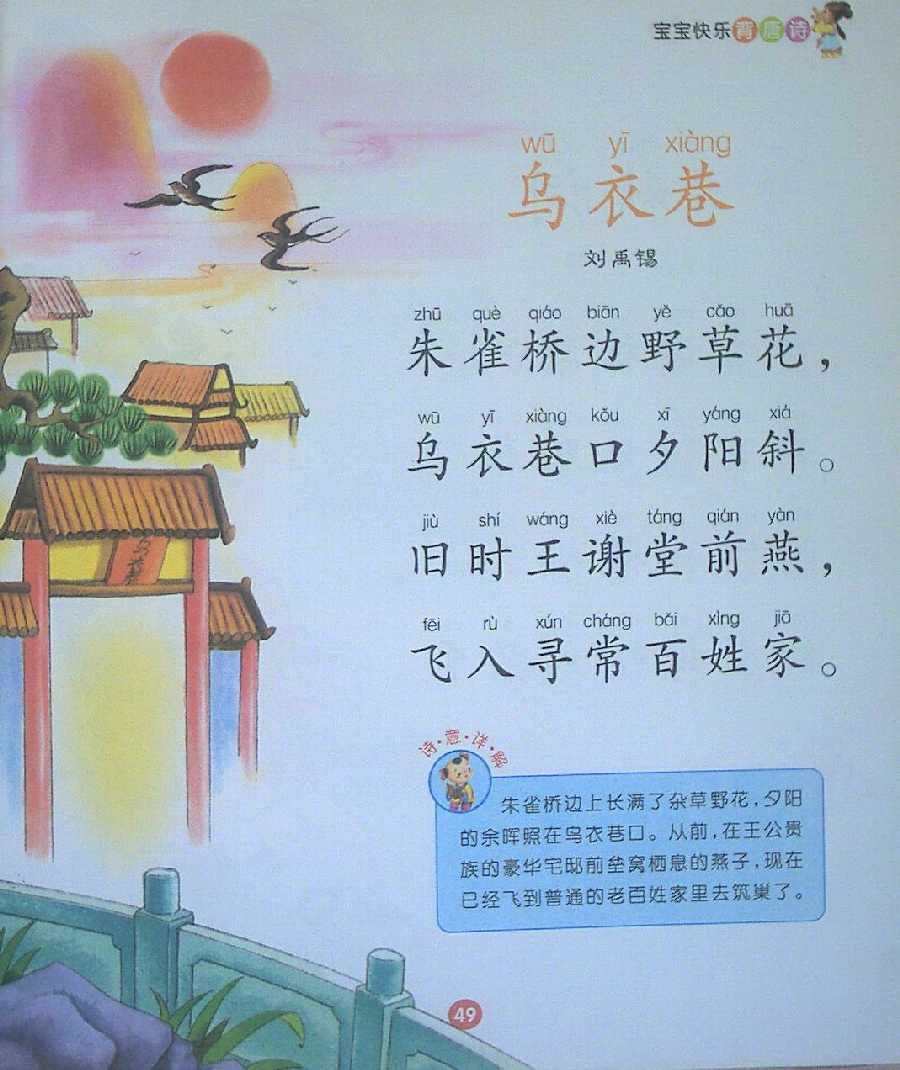 宝宝快乐背唐诗
wū yī xiàng
乌衣巷
刘禹锡
zhū què qiáo biān yě cǎo huā
朱雀桥边野草花，
wū yī xiàng kǒu xī yáng xiá
乌衣巷口夕阳斜。
jiù shí wáng xiè táng qián yàn
旧时王谢堂前燕，
fēi rù xún cháng bǎi xìng jiā
飞入寻常百姓家。
乌衣巷
诗·意·详·解
朱雀桥边上长满了杂草野花，夕阳
的余晖照在乌衣巷口。从前，在王公贵
族的豪华宅邸前垒窝栖息的燕子，现在
已经飞到普通的老百姓家里去筑巢了。
49